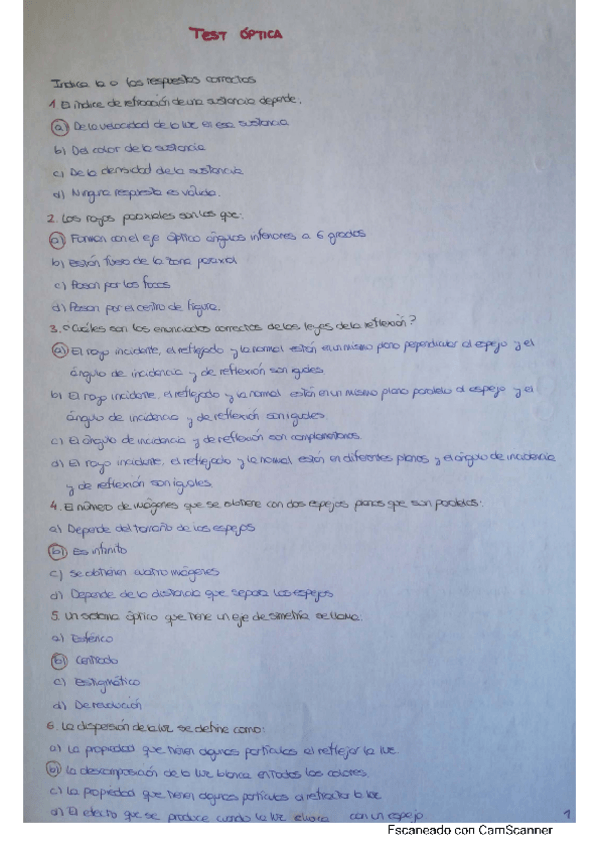 TEST ÓPTICA
Indica la o las respuestas correctas
1 El índice de refracción de una sustancia depende:
a) De la velocidad de la luz en esa sustancia
b) Del color de la sustancia
c) De la densidad de la sustancia
d) Ninguna respuesta es válida.
2. Los rayos paraxiales son los que:
a) Forman con el eje óptico ángulos inferiores a 6 grados
b) Están fuera de la zona paraxial
c) Pasan por los focos
d) Pasan por el centro de figura.
3. ¿Cuáles son los enunciados correctos de las leyes de la reflexión?
a) El rayo incidente, el reflejado y la normal están en un mismo plano perpendicular al espejo y el
ángulo de incidencia y de reflexión son iguales.
b) El rayo incidente, el reflejado y la normal están en un mismo plano paralelo al espejo y el
ángulo de incidencia y de reflexión son iguales.
c) El ángulo de incidencia y de reflexión son complementarios.
d) El rayo incidente, el reflejado y la normal están en diferentes planos y el ángulo de incidencia
y de reflexión son iguales.
4. El número de imágenes que se obtiene con dos espejos planos que son paralelos:
a) Depende del tamaño de los espejos
b) Es infinito
c) Se obtienen cuatro imágenes
d) Depende de la distancia que separa los espejos
5. Un sistema óptico que tiene un eje de simetría se llama:
a) Esférico
b) Centrado
c) Estigmático
d) De revolución
6. La dispersión de la luz se define como:
a) La propiedad que tienen algunas partículas al reflejar la luz
b) La descomposición de la luz blanca en todos los colores.
c) La propiedad que tienen algunas partículas al refractar la luz
d) El efecto que se produce cuando la luz choca con un espejo
1
Escaneado con CamScanner